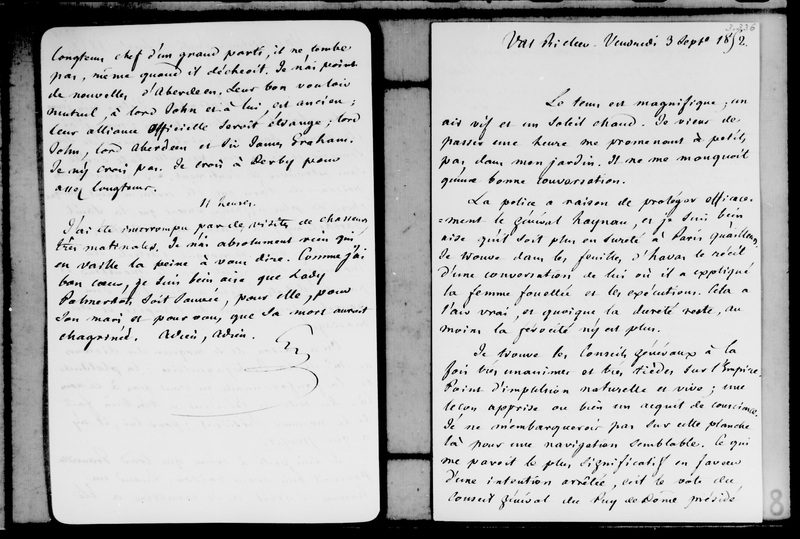 longtems chef d'un grand parti, il ne tombe
pas, même quand il déchoit. Je n'ai point
de nouvelles d'Aberdeen. Leur bon vouloir
mutuel, à lord John et à lui, est ancien ;
leur alliance officielle seroit étrange ; lord
John, lord Aberdeen et Sir James Graham.
Je n'y crois pas. Je crois à Derby pour
assez longtems.
11 heures.
J'ai été interrompu par des visites de chasseurs
très matinales. Je n'ai absolument rien qui
en vaille la peine à vous dire. Comme j'ai
bon cœur, je suis bien aise que Lady
Palmerston soit sauvée, pour elle, pour
son mari et pour vous, que sa mort auroit
chagrinée. Adieu, adieu.
G
2.236
Val Richer. Vendredi 3 Septe 1852.
Le tems est magnifique ; un
air vif et un soleil chaud. Je viens de
passer une heure me promenant à petits
pas dans mon jardin. Il ne me manquoit
qu'une bonne conversation.
La police a raison de protéger efficace-
=ment le général Haynau, et je suis bien
aise qu'il soit plus en sureté à Paris qu'ailleurs.
Je trouve dans les feuilles d'havas le récit
d'une conversation de lui où il a expliqué
la femme fouettée et les exécutions. Cela a
l'air vrai, et quoique la dureté reste, du
moins la férocité n'y est plus.
Je trouve les Conseils généraux à la
fois bien unanimes et bien tièdes sur l'Empire.
Point d'impulsion naturelle et vive ; une
leçon apprise ou bien un acquit de conscience.
Je ne m'embarquerois pas sur cette planche
là pour une navigation semblable. Ce qui
me paroit le plus significatif en faveur
d'une intention arrêtée, c'est le vote du
Conseil général du Puy de Dôme présidé
8